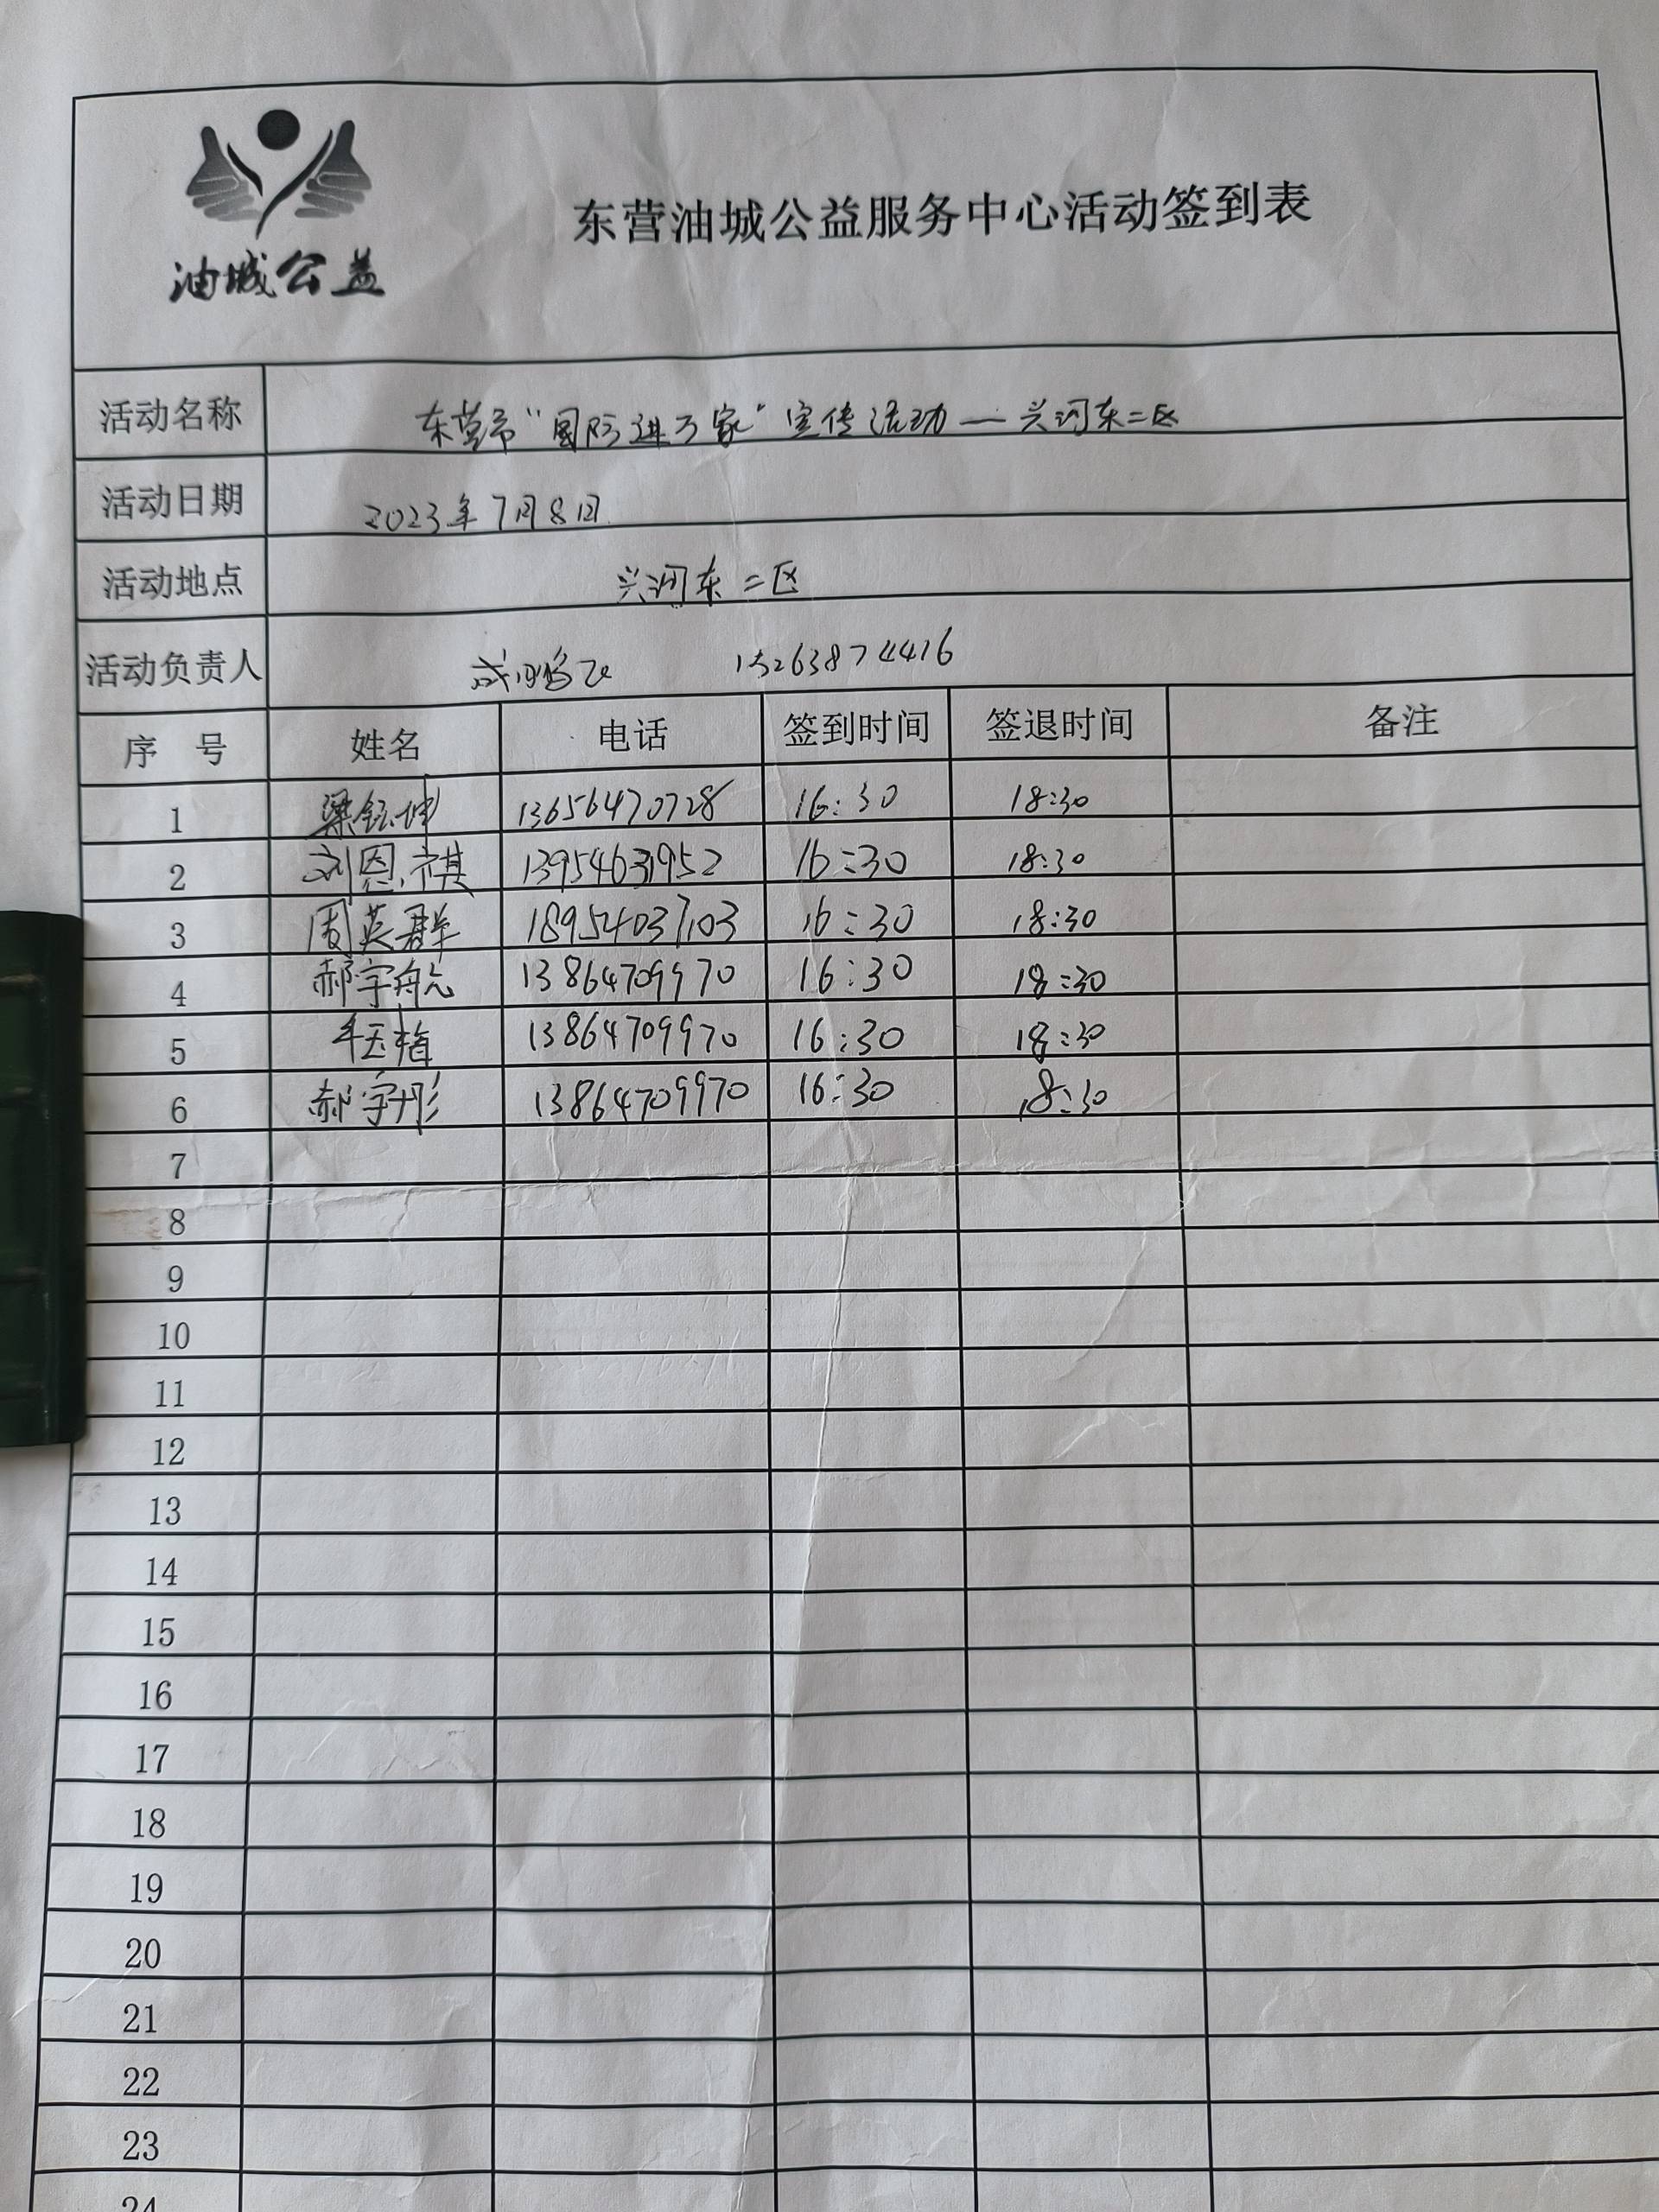 油城公益
东营油城公益服务中心活动签到表
活动名称 东营市"国际进万家"宣传活动—兴河东二区
活动日期 2023年7月8日
活动地点 兴河东二区
活动负责人 15263874416
序 号 姓名 电话 签到时间 签退时间 备注
1 梁钰坤 13656470728 16:30 18:30
2 刘恩祺 13954631952 16:30 18:30
3 周英群 18954037103 16:30 18:30
4 郝宇航 13864709970 16:30 18:30
5 13864709970 16:30 18:30
6 郝宇彤 13864709970 16:30 18:30
7
8
9
10
11
12
13
14
15
16
17
18
19
20
21
22
23
24